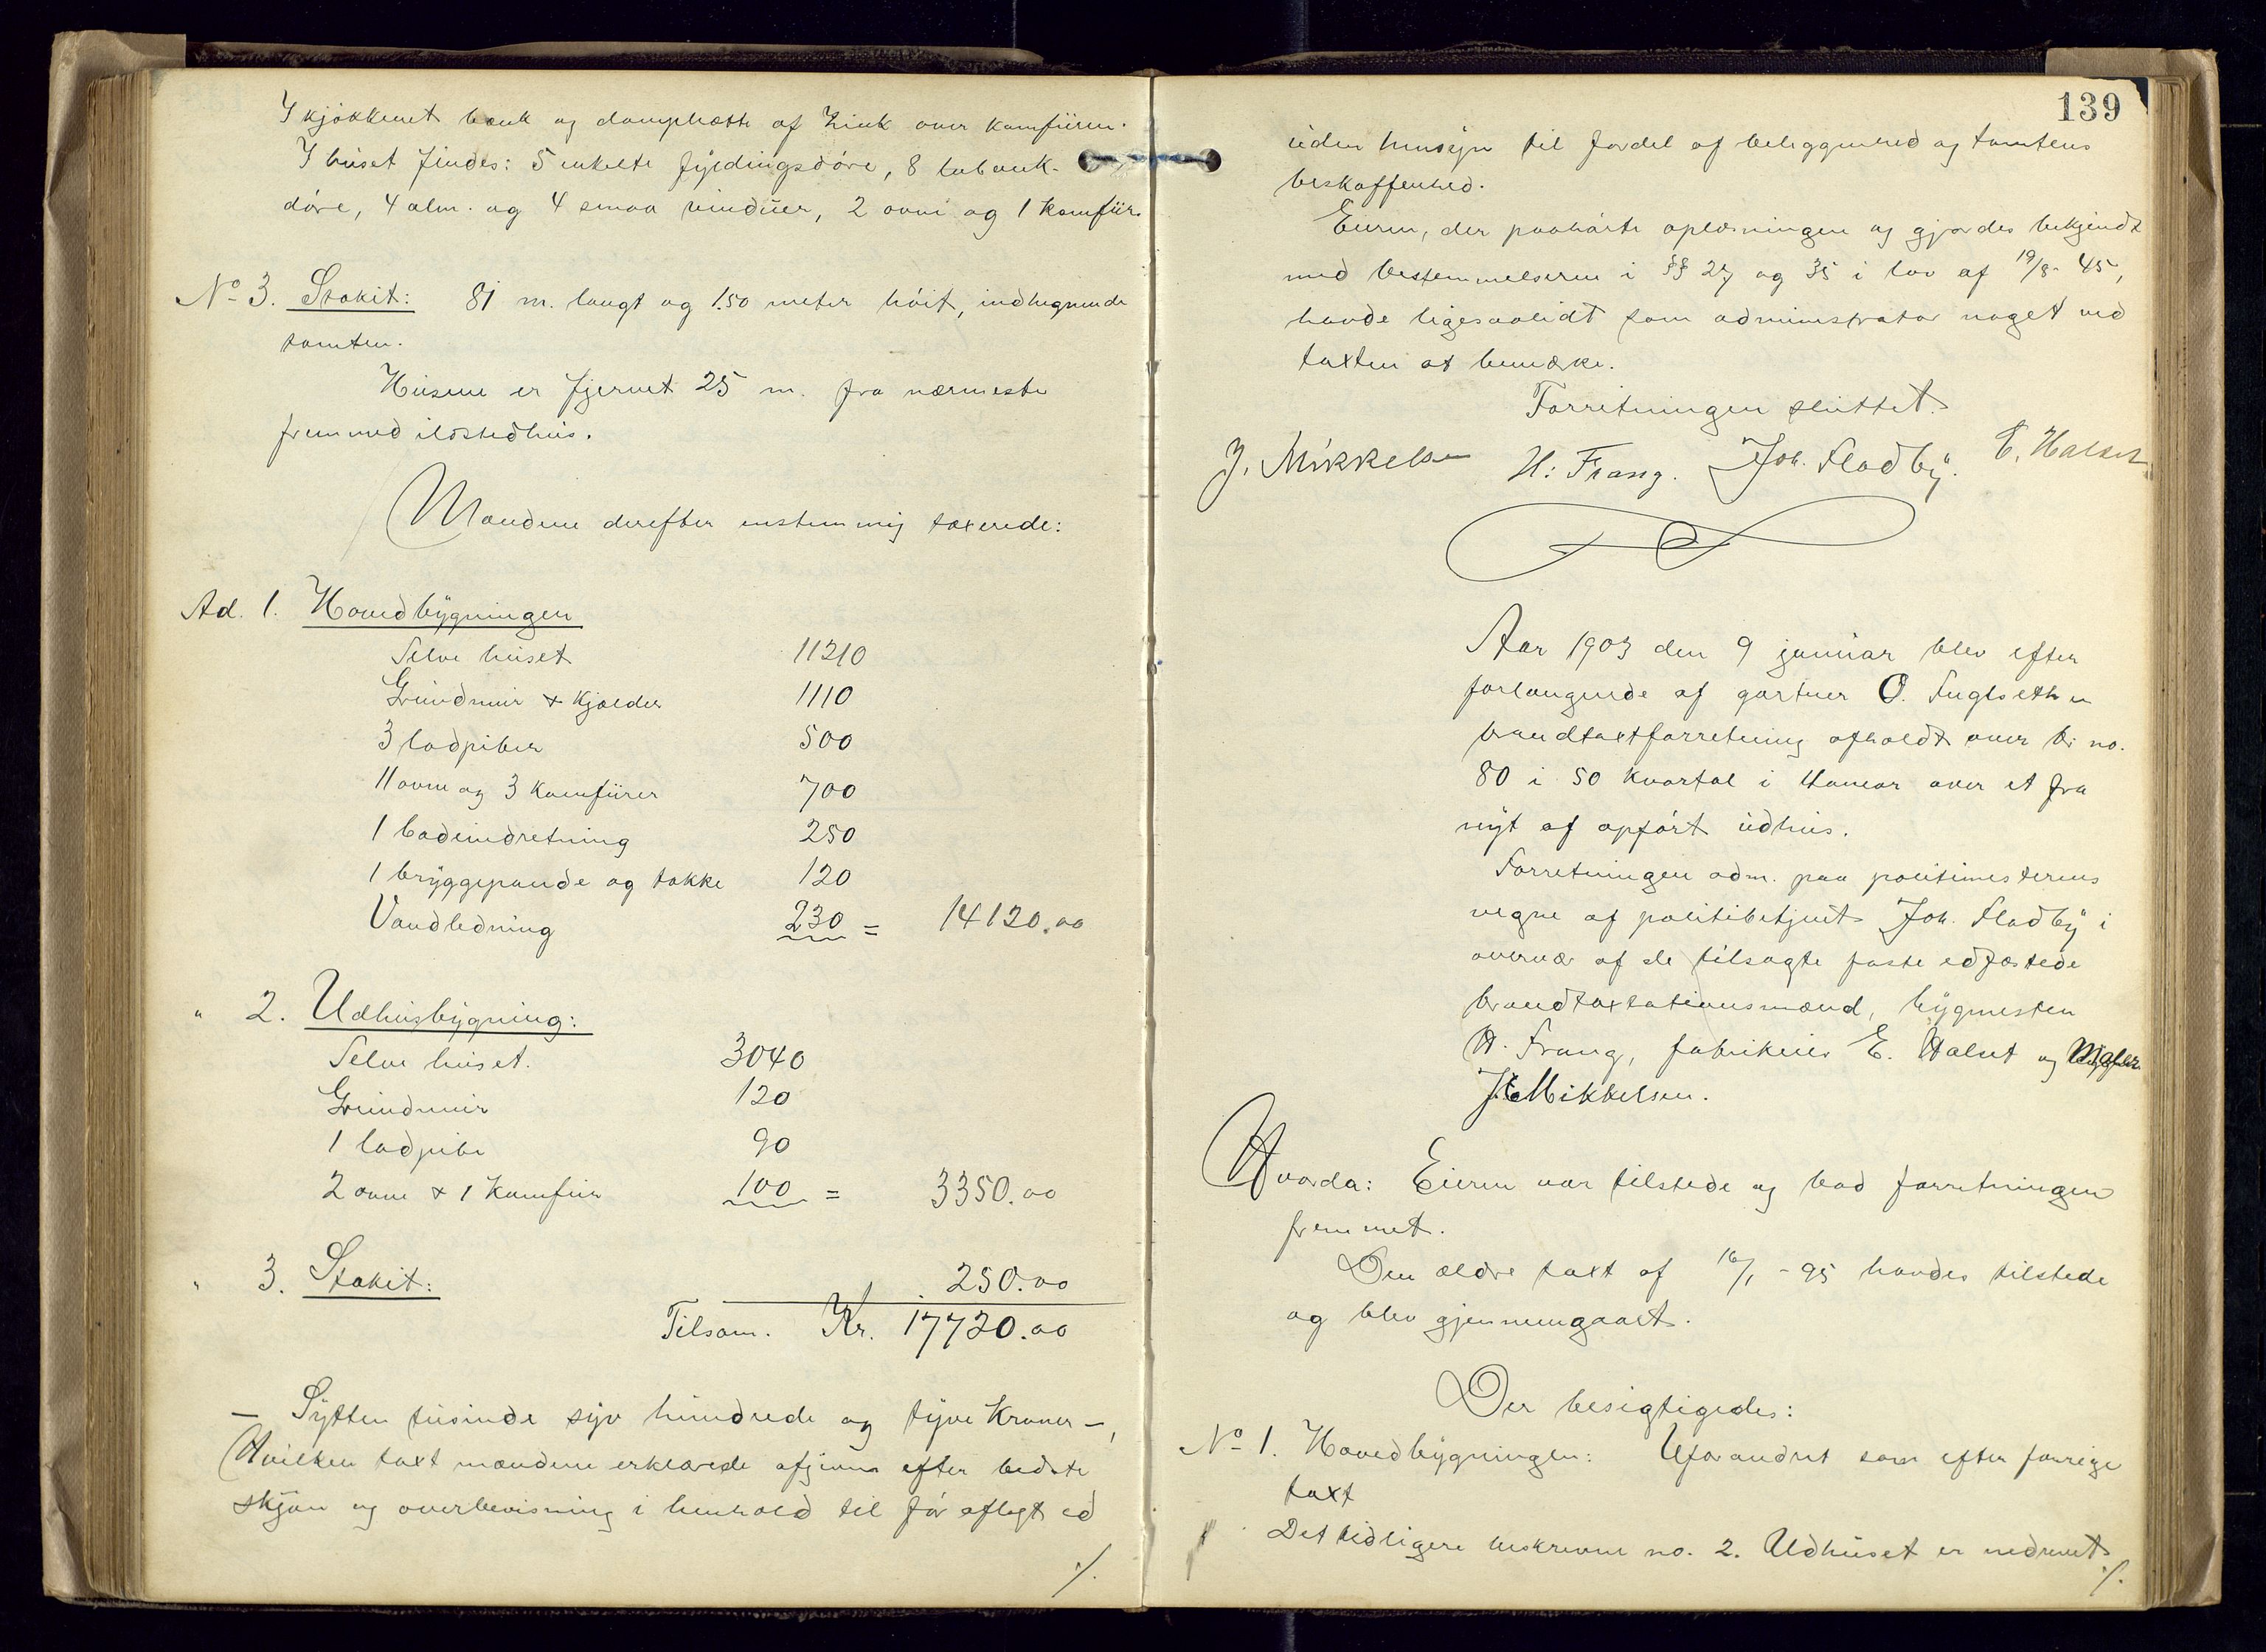 I kjøkkenet bænk og damphætte af Zink over komfüren.
I hüset findes: 5 enkelte fÿldingsdøre, 8 labank-
døre, 4 alm. og 4 smaa vindüer, 2 ovne og 1 komfür.
No 3. Stakit: 81 m. langt og 1.50 meter høit, indhegnende
tomten.
Hüsene er fjernet 25 m. fra nærmeste
fremmed ildstedhüs.
Mændene derefter enstemmig taxerede:
Ad. 1. Hovedbÿgningen
Selve hüset 11210
Gründmür & Kjælder 1110
3 ladpiber 500
11 ovne og 3 komfürer 700
1 badeindretning 250
1 brÿggepande og takke 120
Vandledning 230 = 14120.00
" 2. Udhüsbÿgning:
Selve hüset. 3040
Gründmür 120
1 ladpibe 90
2 ovne & 1 Komfür 100 = 3350.00
" 3. Stakit: 250.00
Tilsam. Kr. 17720.00
— Sÿtten tüsinde sÿv hündrede og tÿve Kroner —,
Hvilken taxt mændene erklærede afgivne efter bedste
skjøn og overbevisning i henhold til før aflagt ed
./.
139
üden hensÿn til fordel af beliggenhed og tomtens
beskaffenhed.
Eieren, der paahørte oplæsningen og gjordes bekjendt
med bestemmelserne i §§ 27 og 35 i lov af 19/8- 45,
havde ligesaalidt som administrator noget ved
taxten at bemærke.
Forretningen slüttet.
J. Mikkelsen H: Frang. Joh. Fladbÿ. E. Halset
Aar 1903 den 9 janüar blev efter
forlangende af gartner O. Fuglseth en
brandtaxtforretning afholdt over br no.
80 i 50 kvartal i Hamar over et fra
nÿt af opført üdhüs.
Forretningen adm. paa politimesterens
vegne af politibetjent Joh. Fladbÿ i
overvær af de tilsagte faste edfæstede
brandtaxtationsmænd, bÿgmester
H. Frang, fabrikeier E. Halset og Maler
J. Mikkelsen.
Hvorda: Eieren var tilstede og bad forretningen
fremmet.
Den ældre taxt af 16/1 - 95 havdes tilstede
og blev gjennemgaaet.
Der besigtigedes:
No 1. Hovedbÿgningen: Uforandret som efter forrige
taxt
Det tidligere beskrevne no. 2. Udhüset er nedrevet.
./.